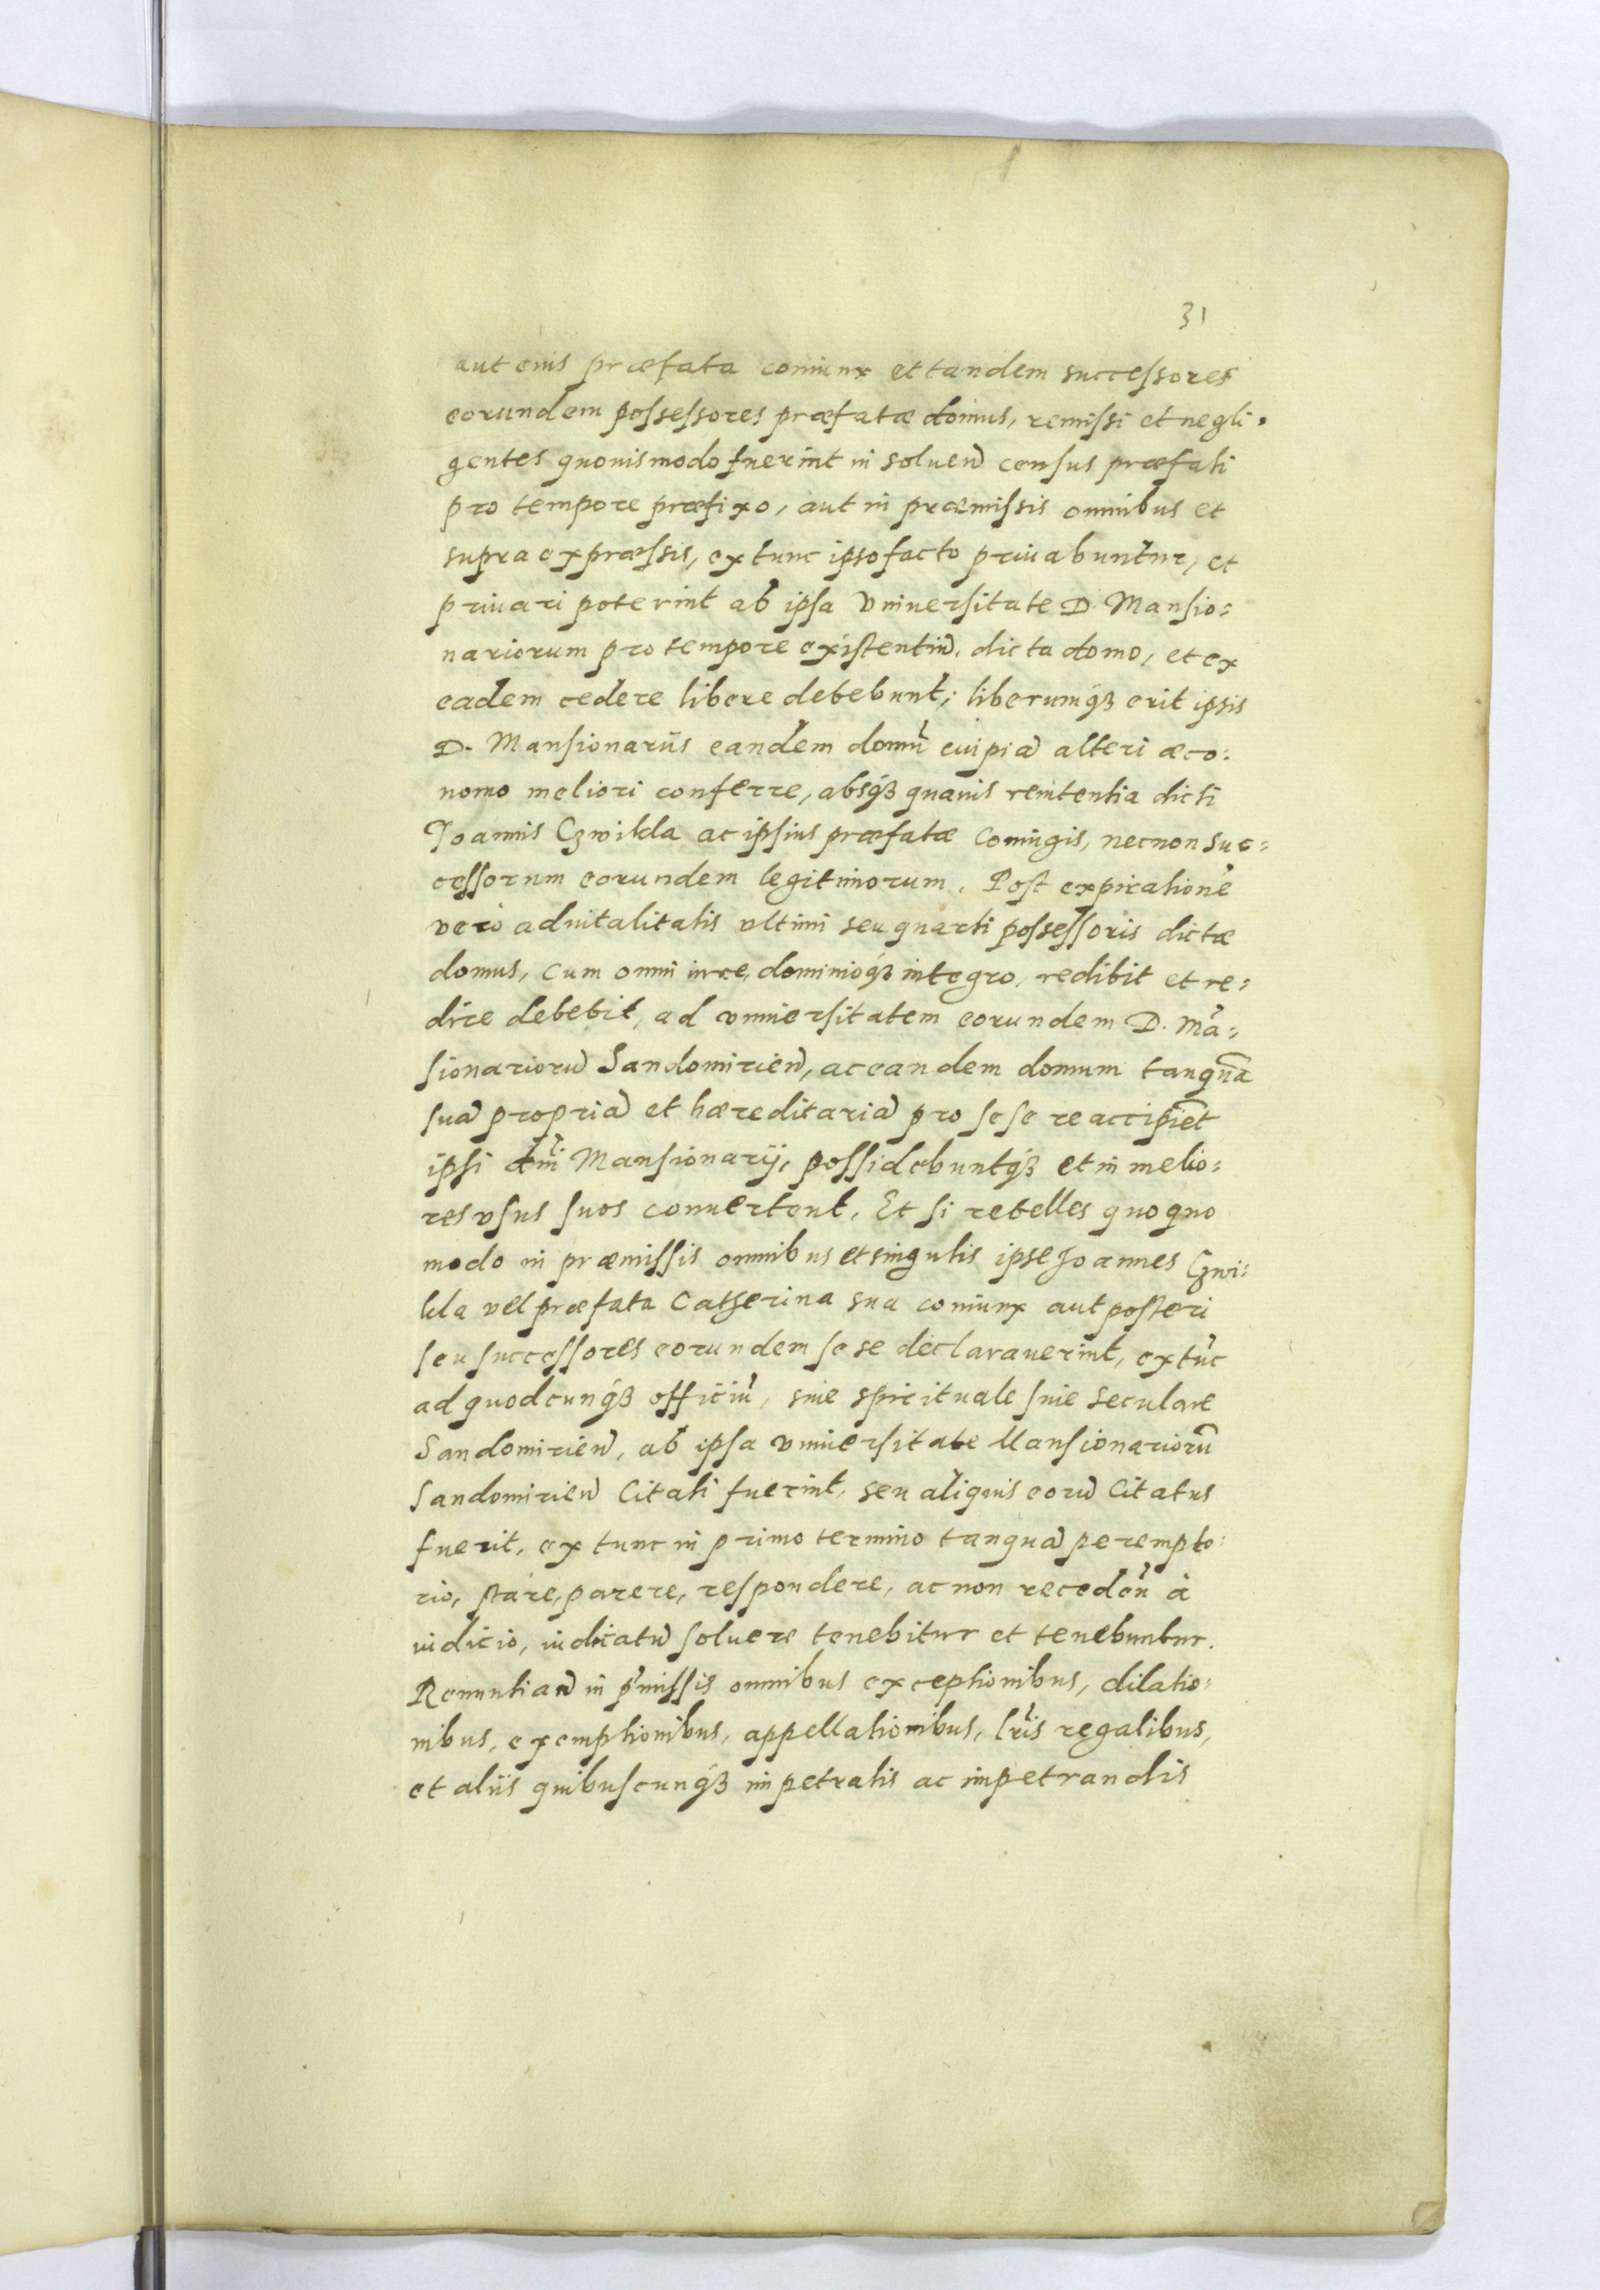 31
aut eius præfata coniunx et tandem successores
eorundem possessores præfatæ domus, remissi et negli-
gentes quouismodo fuerint in soluen̄ census præfati
pro tempore præfixo, aut in præmissis omnibus et
supra expræssis, extunc ipso facto priuabuntur, et
priuari poterint ab ipsa Vniuersitate D. Mansio=
nariorum pro tempore existentiū, dicta domo, et ex
eadem cedere libere debebunt; liberumqꝫ erit ipsis
D. Mansionariis eandem domū cuipiā alteri æco=
nomo meliori conferre, absqꝫ quauis renitentia dicti
Joannis Czwikla ac ipsius præfatæ Coniugis, necnon suc=
cessorum eorundem legitimorum. Post expirationē
vero aduitalitatis vltimi seu quarti possessoris dictæ
domus, cum omni iure, dominioqꝫ integro, redibit et re=
dire debebit, ad vniuersitatem eorundem D. Mā=
sionariorū Sandomirien̄, ac eandem domum tanquā
suā propriā et hæreditariā pro se se reaccipiēt
ipsi dn̄i Mansionarij, possidebuntqꝫ et in melio=
res vsus suos conuertent. Et si rebelles quoquo
modo in præmissis omnibus et singulis ipse Joannes Czwi=
kla vel præfata Catherina sua coniunx aut posteri
seu successores eorundem se se declarauerint, extūc
ad quodcunqꝫ officiū, siue spirituale siue seculare
Sandomirien̄, ab ipsa vniuersitate Mansionariorū
Sandomirien̄ Citati fuerint, seu aliquis eorū Citatus
fuerit, ex tunc in primo termino tanquā perempto=
rio, stare, parere, respondere, ac non receden̄ à
iudicio, iudicatū soluere tenebitur et tenebuntur.
Renuntian̄ in p̄missis omnibus exceptionibus, dilatio=
nibus, exemptionibus, appellationibus, lr̄is regalibus,
et aliis quibuscunqꝫ impetratis ac impetrandis